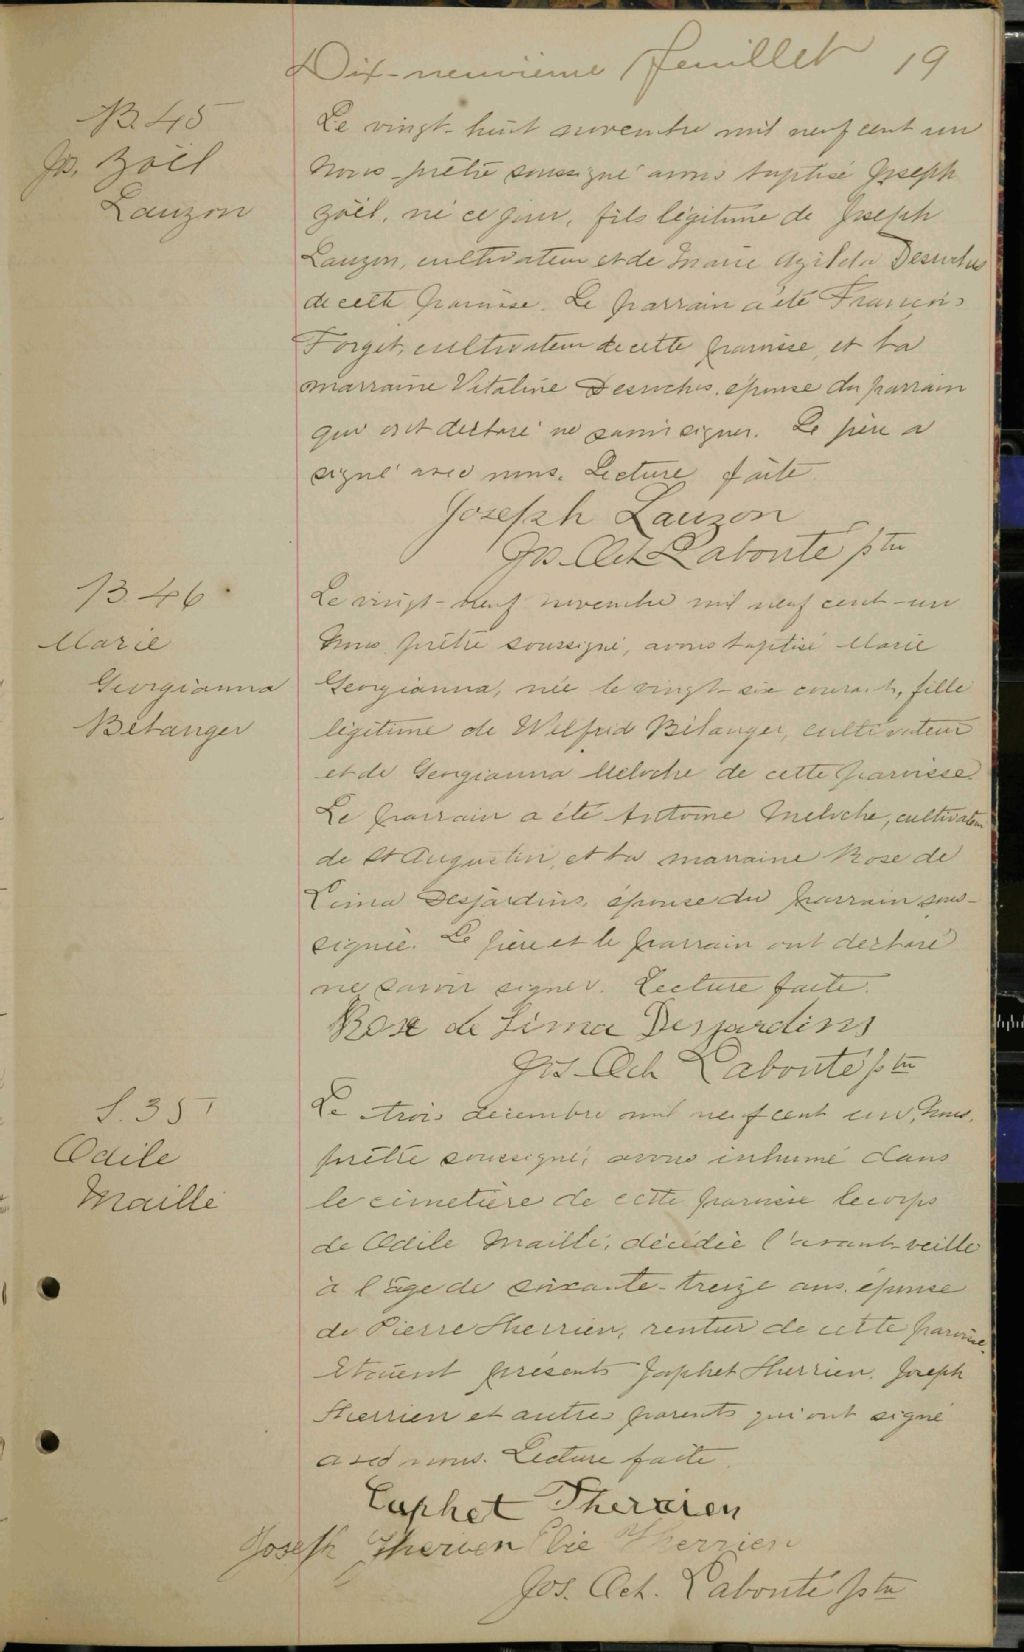 Dix-neuvième feuillet 19
B. 45
Js. Zoël
Lauzon
Le vingt-huit novembre mil neuf cent un
nous prêtre soussigné avons baptisé Joseph
Zoël, né ce jour, fils légitime de Joseph
Lauzon, cultivateur et de Marie Azilda Desroches
de cette paroisse. Le parrain a été François
Forget, cultivateur de cette paroisse, et la
marraine Vitaline Desroches, épouse du parrain
qui ont déclaré ne savoir signer. Le père a
signé avec nous. Lecture faite.
Joseph Lauzon
Js. Oct. Labonté ptre
B 46
Marie
Georgianna
Bélanger
Le vingt-neuf novembre mil neuf cent-un
Nous prêtre soussigné, avons baptisé Marie
Georgianna, née le vingt-six courant, fille
légitime de Wilfrid Bélanger, cultivateur
et de Georgianna Meloche de cette paroisse.
Le parrain a été Antoine Meloche, cultivateur
de St Augustin, et la marraine Rose de
Lima Desjardins, épouse du parrain sous-
signée. Le père et le parrain ont déclaré
ne savoir signer. Lecture faite.
Rose de Lima Desjardins
Js. Oct. Labonté ptre
S. 35
Odile
Maillé
Le trois décembre mil neuf cent un, Nous,
prêtre soussigné, avons inhumé dans
le cimetière de cette paroisse le corps
de Odile Maillé, décédée l'avant-veille
à l'âge de soixante-treize ans, épouse
de Pierre Therrien, rentier de cette paroisse.
Etaient présents Japhet Therrien, Joseph
Therrien et autres parents qui ont signé
avec nous. Lecture faite.
Japhet Therrien
Joseph Therien Elie Therrien
Jos. Oct. Labonté ptre